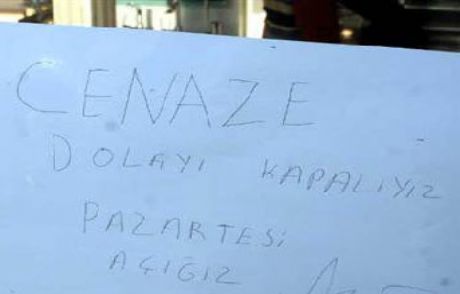 CENAZE
DOLAYI KAPALIYIZ
PAZARTESİ
AÇIĞIZ